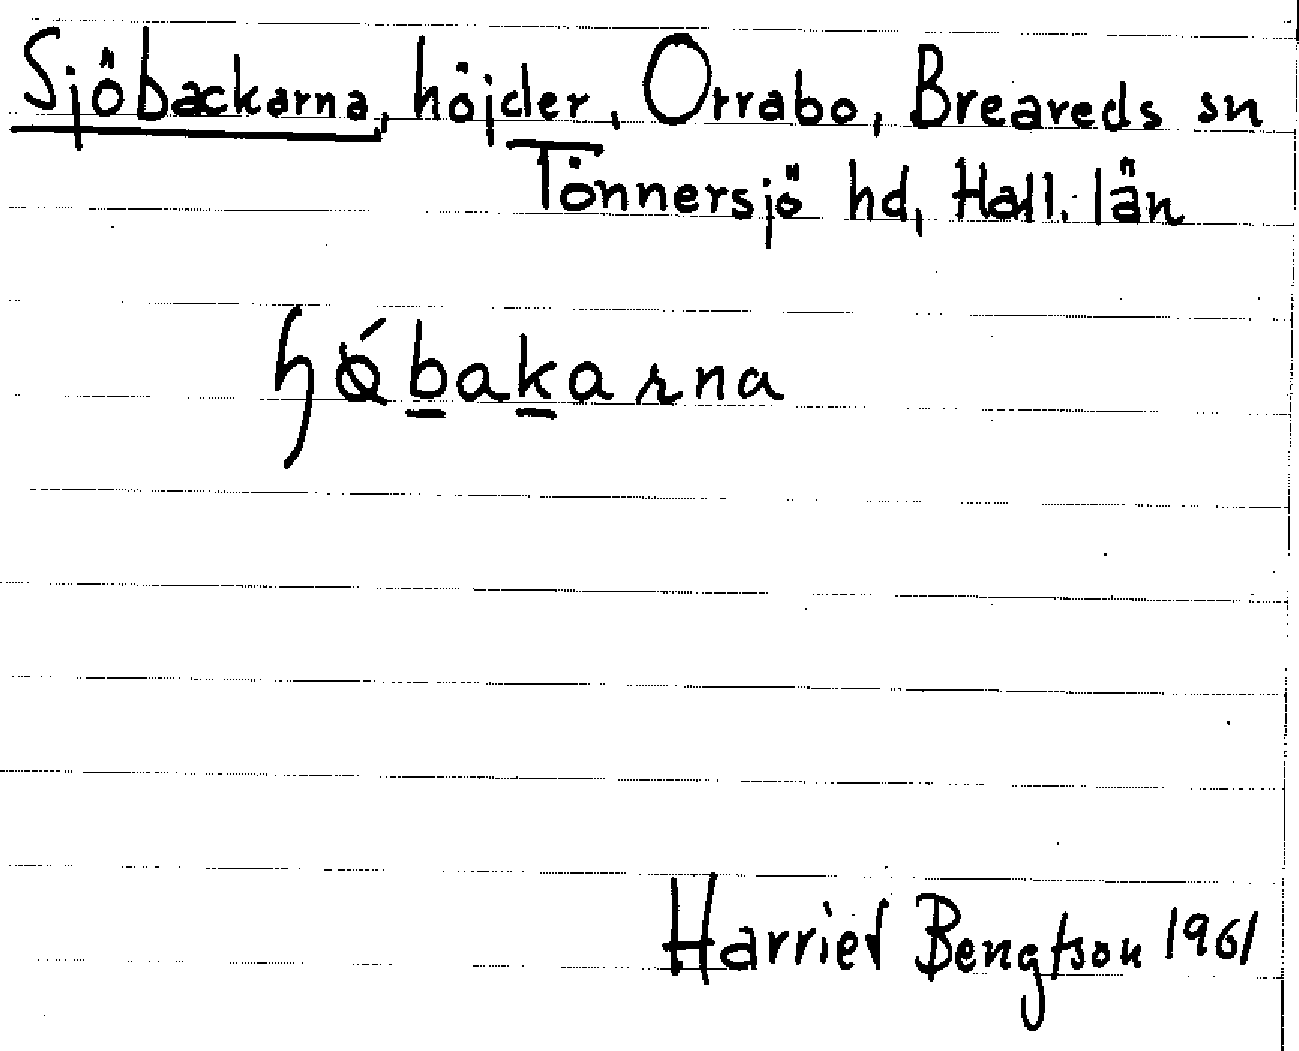 Sjöbackarna, höjder, Orrabo, Breareds sn
Tönnersjö hd, Hall. län
ɧǿbakarna
Harriet Bengtson 1961